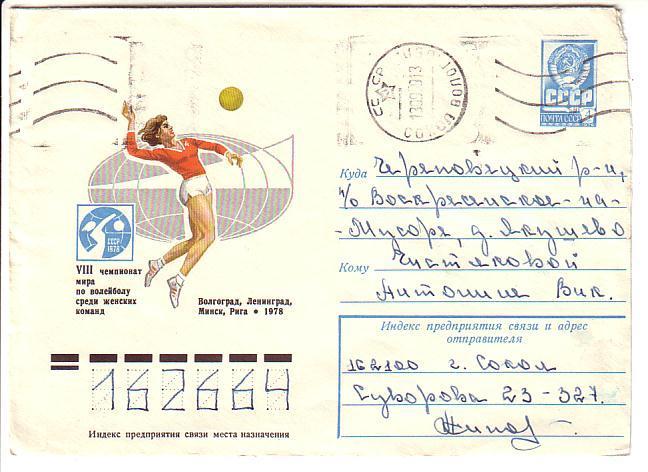 СССР
СССР
ПОЧТА СССР
СССР
1978
VIII чемпионат
мира
по волейболу
среди женских
команд
Волгоград, Ленинград,
Минск, Рига • 1978
Куда Череповецкий р-н,
п/о Воскресенское-на-
-Мусоре, д. Якушево
Кому Чистяковой
Антонине Вик.
Индекс предприятия связи и адрес
отправителя
162100 г. Сокол
Суворова 23-327.
162664
Индекс предприятия связи места назначения